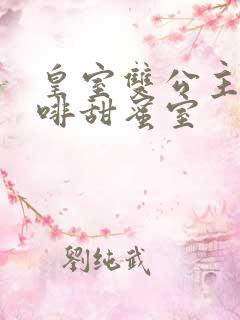 皇室雙公主
啡甜蜜室
劉纯武